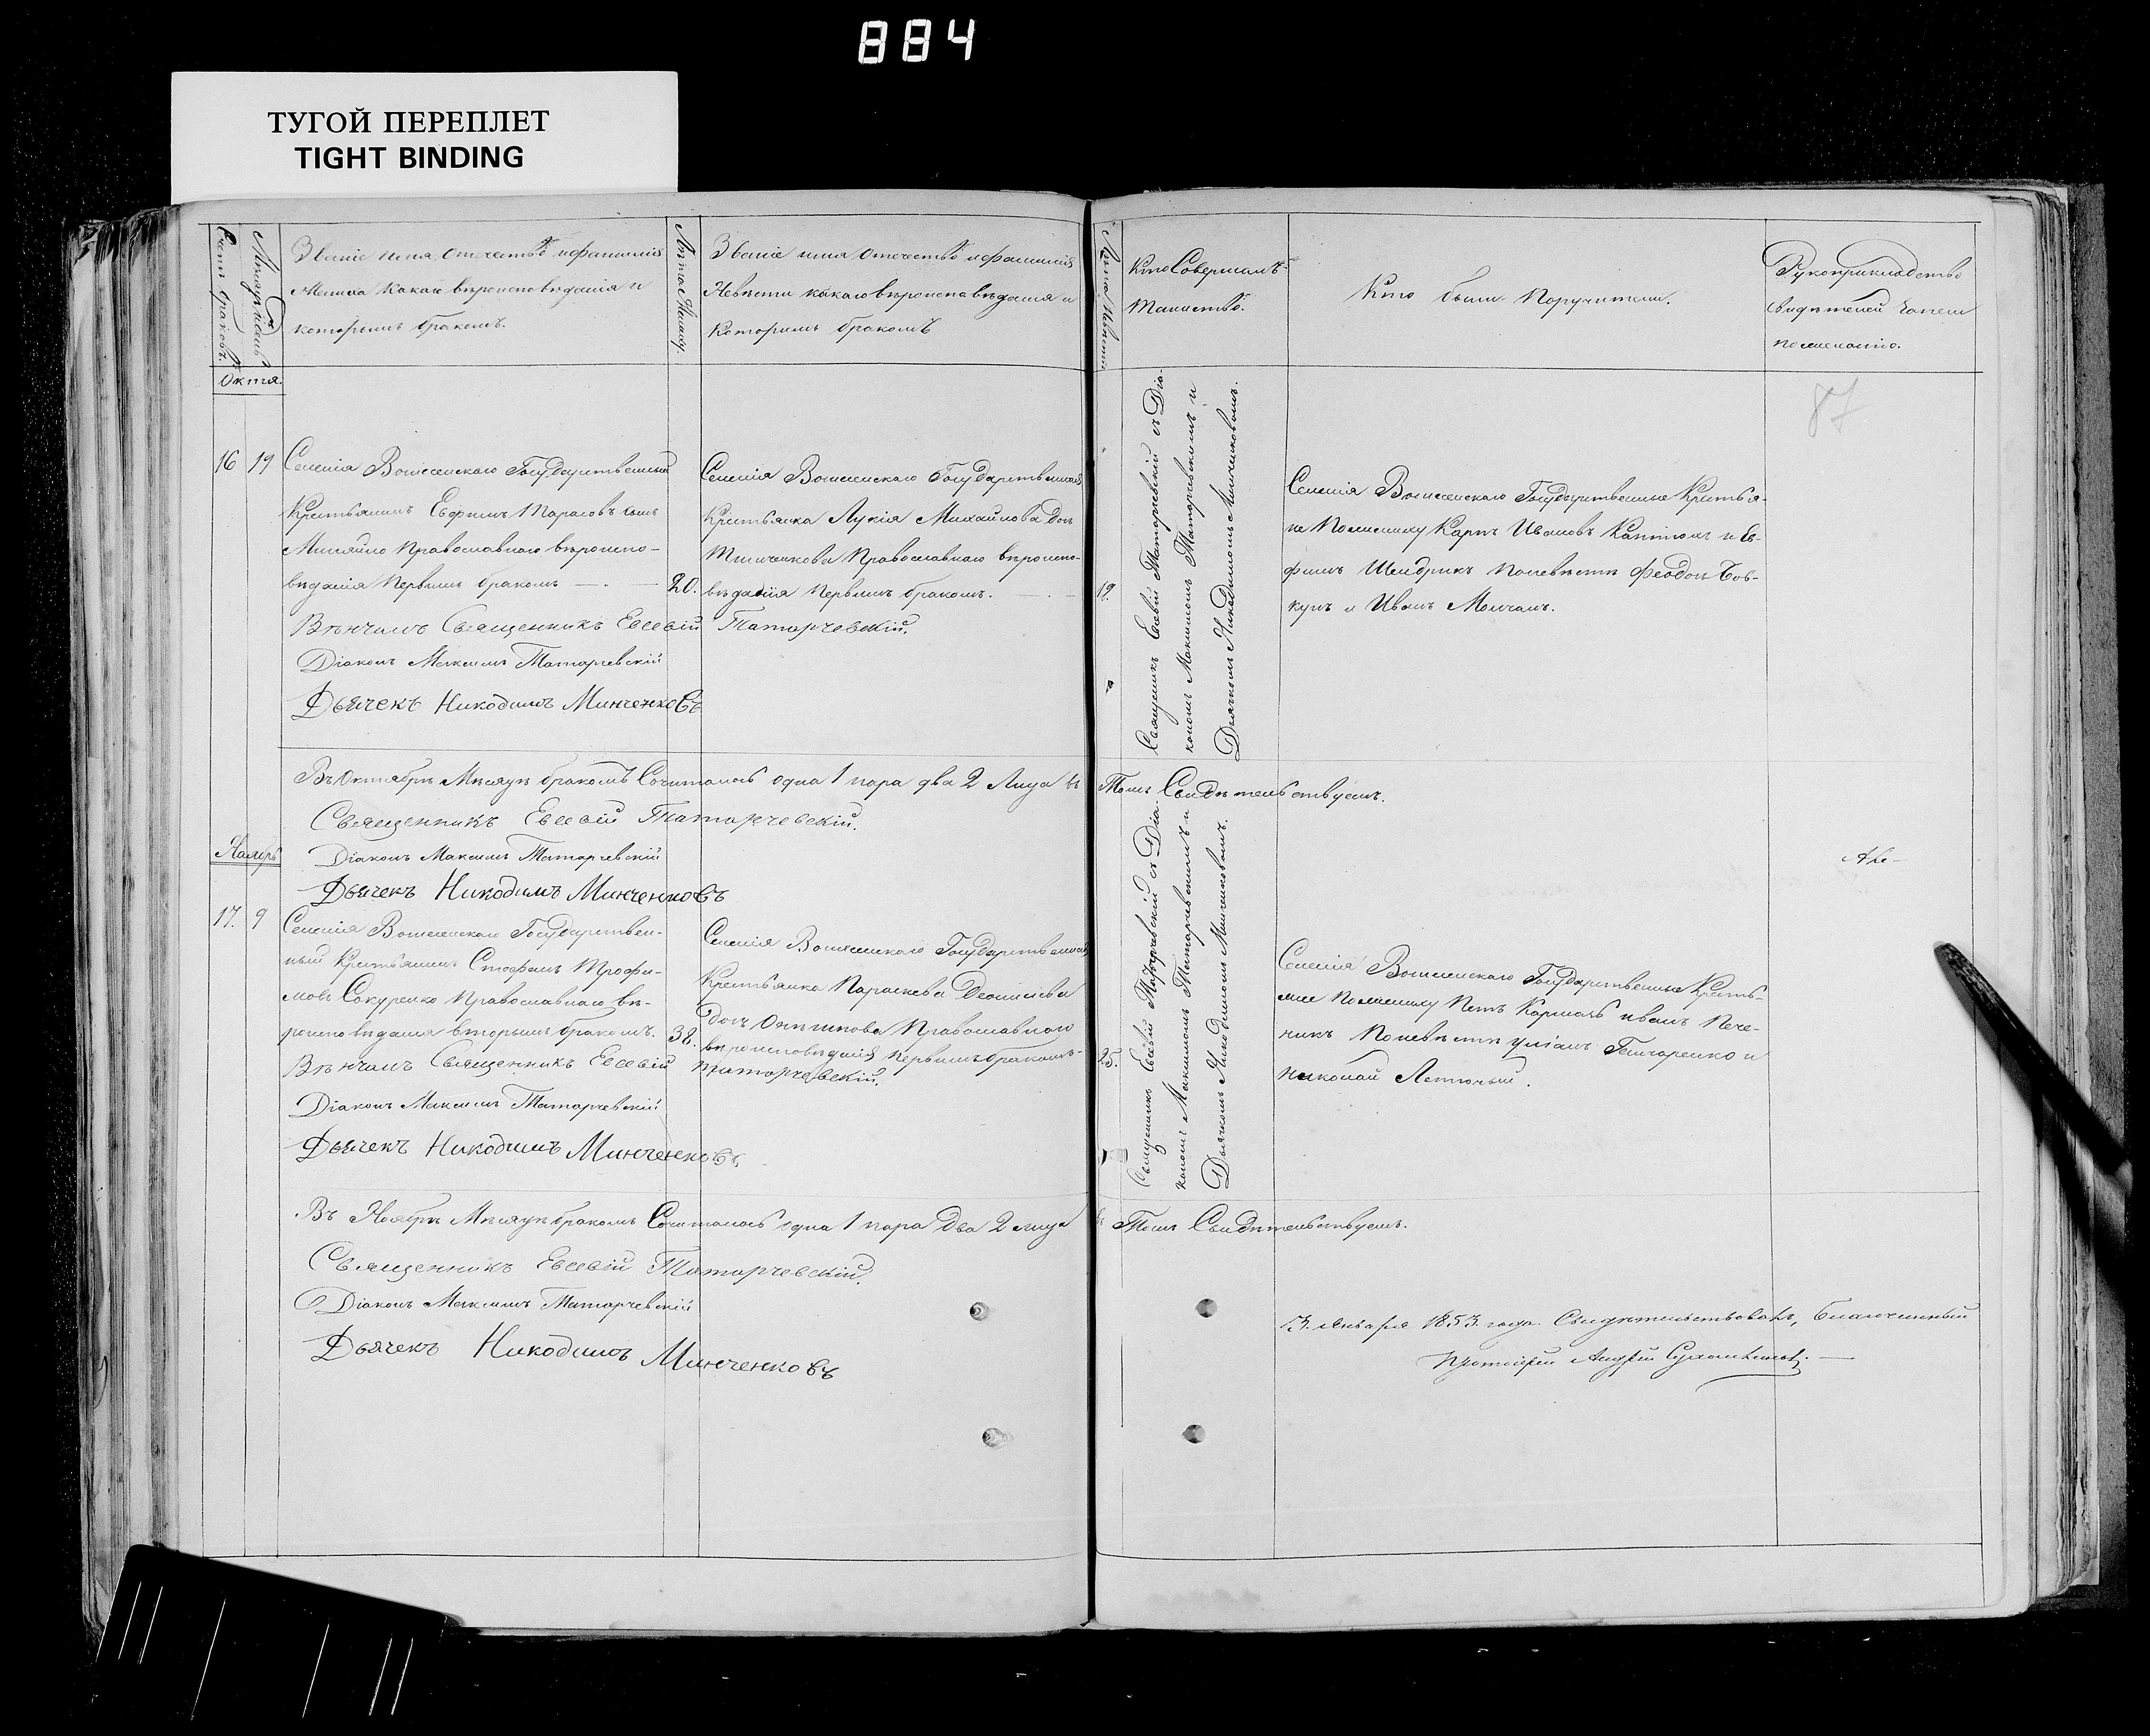 884
ТУГОЙ ПЕРЕПЛЕТ
TIGHT BINDING
Счетъ браковъ.
Мѣсяцъ и день
Званіе имя отечество и фамилія
Жениха какого вѣроисповѣданія и
которымъ бракомъ.
Лѣта Жениха.
Званіе имя отечество и фамилія
Невѣсты какого вѣроисповѣданія и
Которимъ бракомъ
Лѣта Невѣсты
Кто Совершалъ
Таинство.
Кто были Поручители.
Рукоприкладство
свидѣтелей
по желанію.
Октя.
87
16 19
Селенія Государственный
Крестьянинъ Евфимъ Тарасовъ сынъ
Православнаго вѣроиспо-
вѣданія Первымъ бракомъ
20.
Селенія Государственная
Крестьянка Лукія Михайлова Дочь
Православнаго вѣроиспо-
вѣданія Первымъ бракомъ.
19.
Священникъ Евсевій Татарчевскій съ Діа-
кономъ Максимомъ Татарчевскимъ и
Дьячкомъ Никодимомъ Минченковымъ.
Селенія Государственные Крестья-
не По жениху Карпъ Ивановъ и Ев-
фимъ Шендрикъ По невѣстѣ Феодоръ Бов-
кунъ и Иванъ Молчанъ.
Вѣнчалъ Священникъ Евсевій Татарчевскій.
Діаконъ Максимъ Татарчевскій
Дьячекъ Никодимъ Минченковъ
Въ Октябрѣ Мѣсяцѣ бракомъ Сочиталось одна 1 пара два 2 Лица въ Томъ Свидѣтельствуемъ.
Священникъ Евсевій Татарчевскій.
Ноябрь
Діаконъ Максимъ Татарчевскій
Дьячекъ Никодимъ Минченковъ
17. 9
Селенія Государствен-
ный Крестьянинъ Стефанъ Трофи-
мовъ Сокуренко Православнаго вѣ-
роисповѣданія вторымъ бракомъ.
38.
Селенія Государственная
Крестьянка Параскева Деонисіева
Дочь Православнаго
вѣроисповѣданія первымъ бракомъ
25.
Священникъ Евсевій Татарчевскій съ Діа-
кономъ Максимомъ Татарчевскимъ и
Дьячкомъ Никодимомъ Минченковымъ.
Селенія Государственные Кресть-
яне По жениху Петъ Иванъ Пече-
никъ По невѣстѣ Уліанъ Гончаренко и
Николай
Вѣнчалъ Священникъ Евсевій Татарчевскій.
Діаконъ Максимъ Татарчевскій
Дьячекъ Никодимъ Минченковъ
Въ Ноябрѣ Мѣсяцѣ бракомъ Сочиталось одна 1 пара Два 2 лица въ Томъ Свидѣтельствуемъ.
Священникъ Евсевій Татарчевскій.
Діаконъ Максимъ Татарчевскій
Дьячекъ Никодимъ Минченковъ
13. Января 1853. года. Свидѣтельствовалъ, благочинный
Протоіерей Андрей